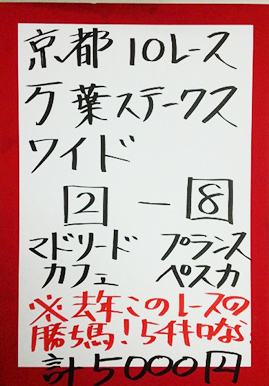 京都10レース
万葉ステークス
ワイド
2 - 8
マドリード プランス
カフェ ペスカ
※去年このレースの
勝ち馬!54キロなら
計5000円